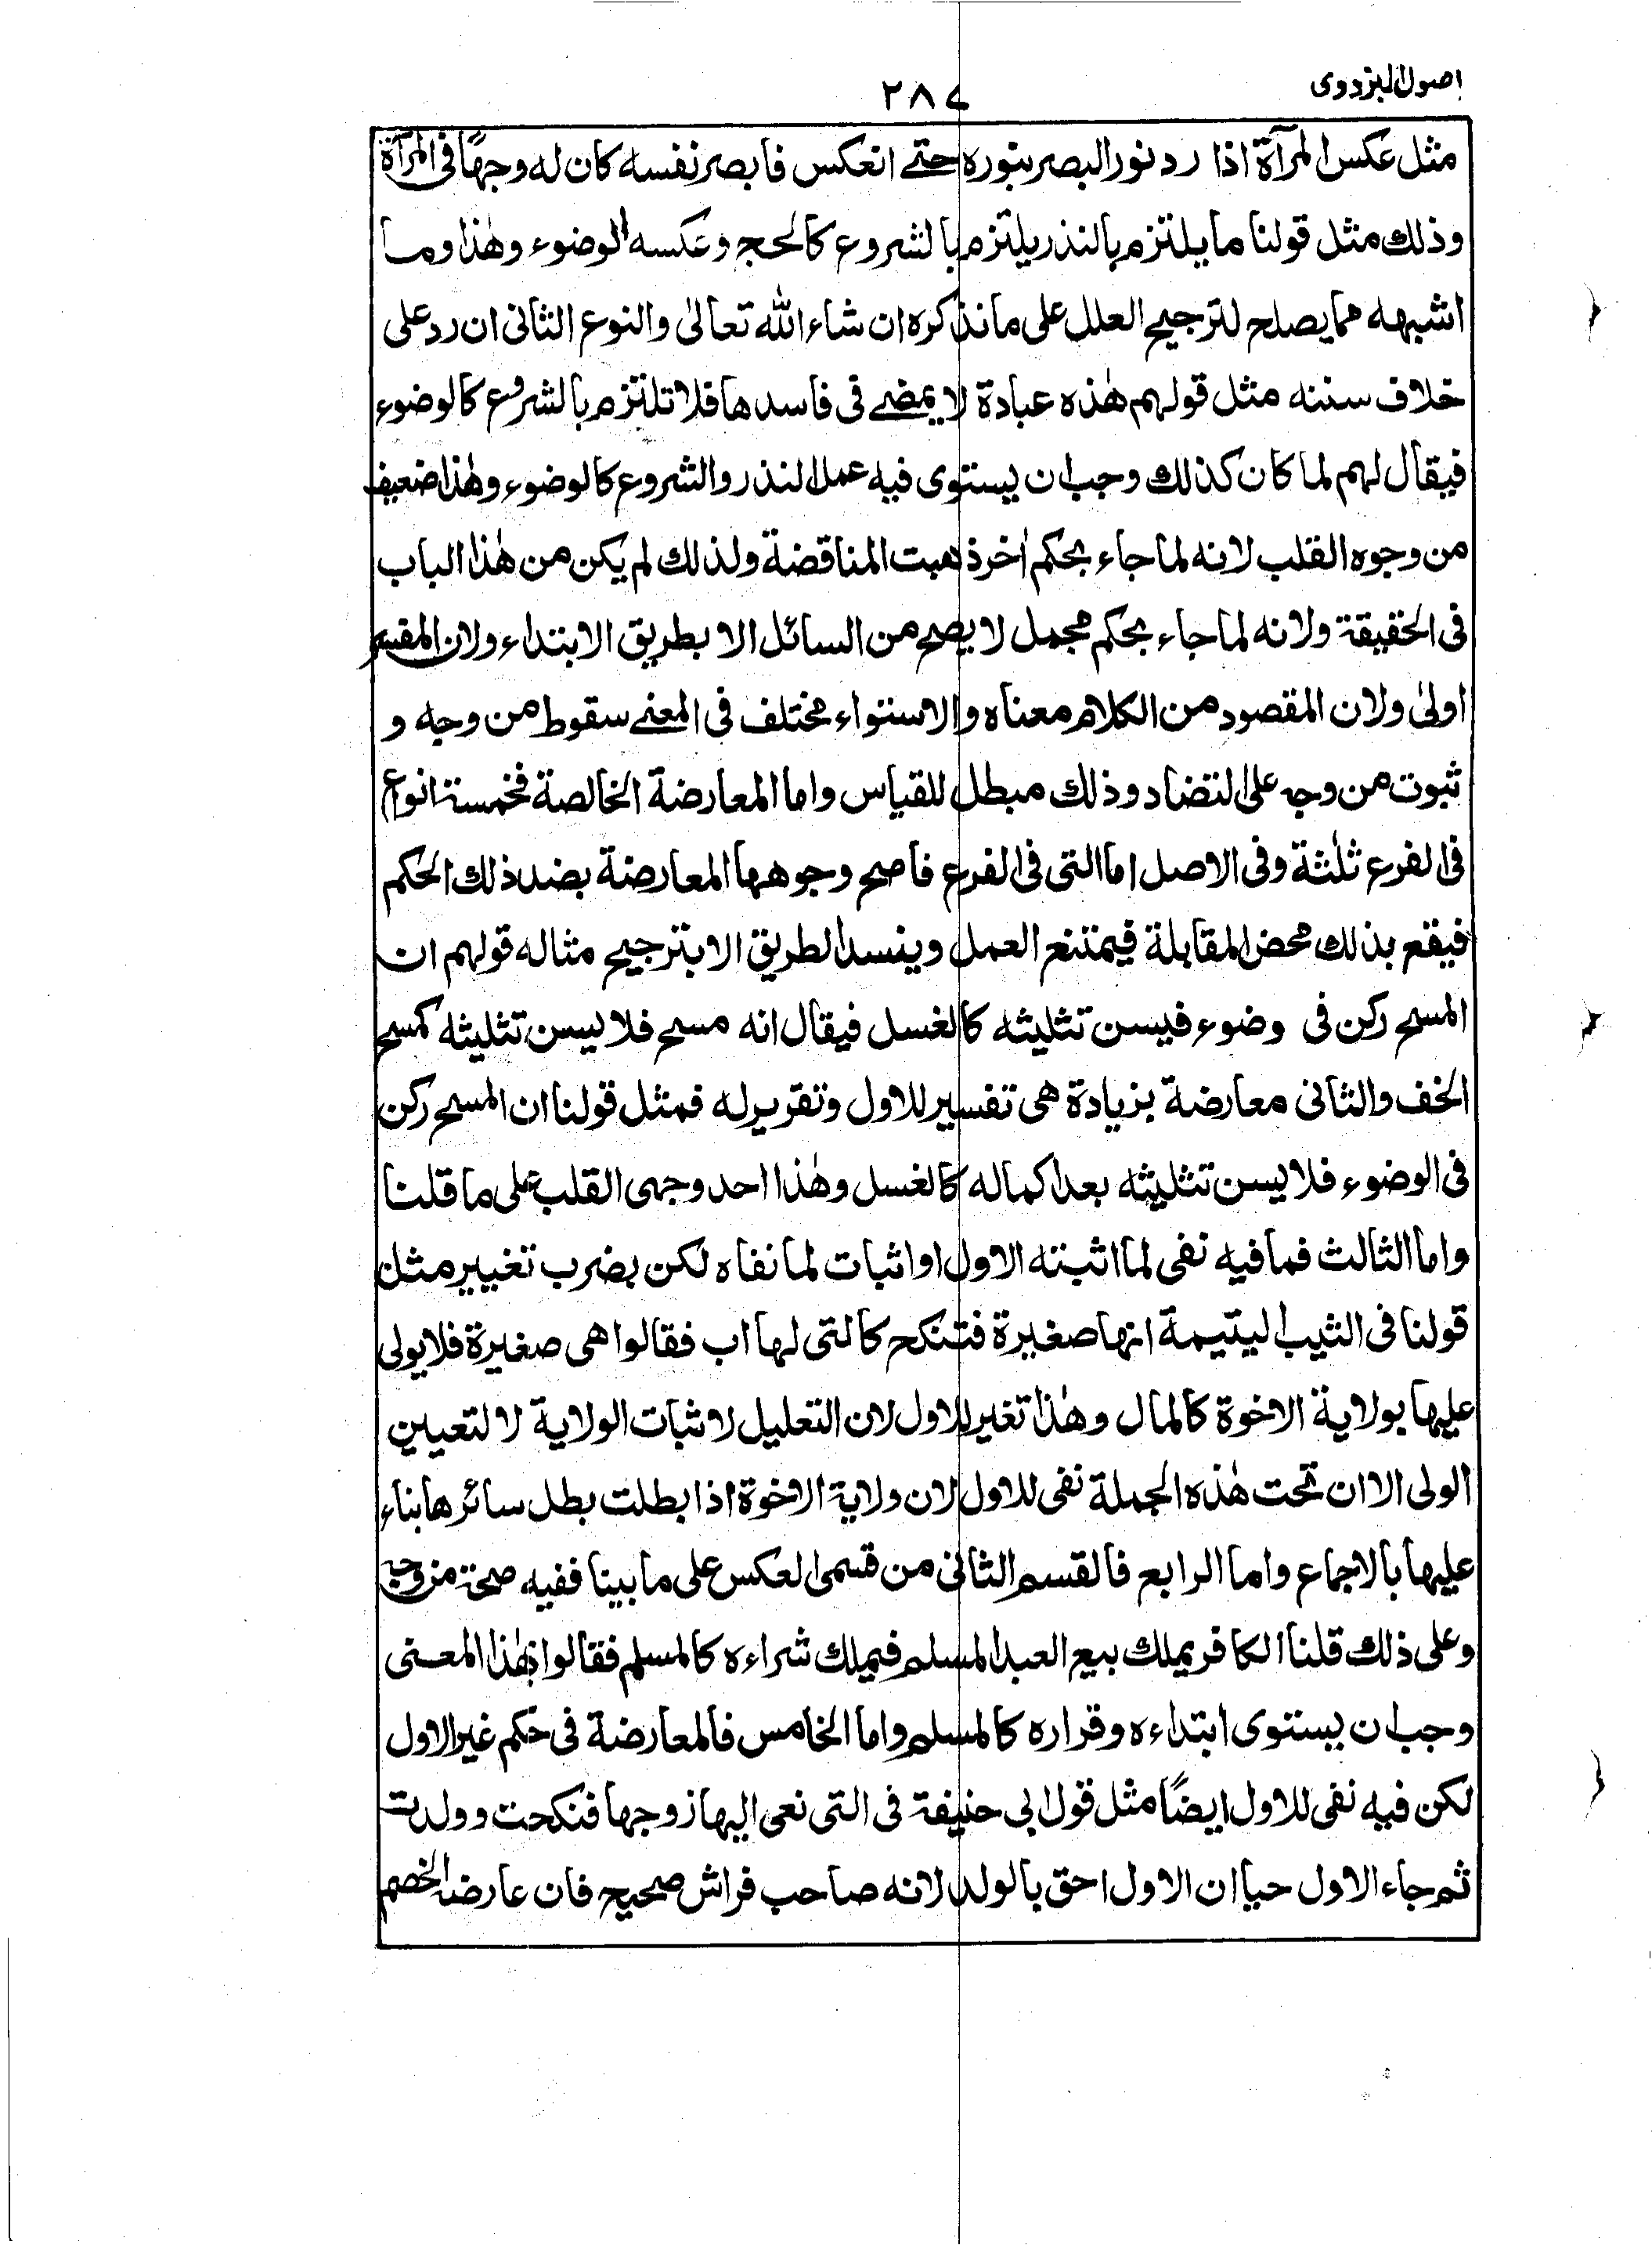 اصول البزدوى
٢٨٧
مثل عكس المرآة اذا رد نور البصر بنوره حتے انعكس فابصر نفسه كان له وجهًا فى المرآة
وذلك مثل قولنا ما يلتزم بالنذر يلتزم بالشروع كالحج وعكسه الوضوء وهٰذا وما
اشبهه مما يصلح لترجيح العلل على ما نذكره ان شاء الله تعالىٰ والنوع الثانى ان رد على
خلاف سننه مثل قولهم هٰذه عبادة لا يمضے فى فاسدها فلا تلتزم بالشروع كالوضوء
فيقال لهم لما كان كذلك وجب ان يستوى فيه عمل النذر والشروع كالوضوء وهٰذا ضعيف
من وجوه القلب لانه لما جاء بحكم اٰخر ذهبت المناقضة ولذلك لم يكن من هٰذا الباب
فى الحقيقة ولانه لما جاء بحكم مجمل لا يصح من السائل الا بطريق الابتداء ولان المفسر
اولىٰ ولان المقصود من الكلام معناه والاستواء مختلف فى المعنے سقوط من وجه و
ثبوت من وجه على التضاد وذلك مبطل للقياس واما المعارضة الخالصة فخمسة انواع
فى الفرع ثلٰثة وفى الاصل اما التى فى الفرع فاصح وجوهها المعارضة بضد ذلك الحكم
فيقع بذلك محض المقابلة فيمتنع العمل وينسد الطريق الا بترجيح مثاله قولهم ان
المسح ركن فى وضوء فيسن تثليثه كالغسل فيقال انه مسح فلا يسن تثليثه كمسح
الخف والثانى معارضة بزيادة هى تفسير للاول وتقرير له فمثل قولنا ان المسح ركن
فى الوضوء فلا يسن تثليثه بعد اكماله كالغسل وهٰذا احد وجهى القلب على ما قلنا
واما الثالث فما فيه نفى لما اثبته الاول او اثبات لما نفاه لكن بضرب تغيير مثل
قولنا فى الثيب اليتيمة انها صغيرة فتنكح كالتى لها اب فقالوا هى صغيرة فلا يولى
عليها بولاية الاخوة كالمال وهٰذا تغير للاول لان التعليل لاثبات الولاية لا لتعيين
الولى الا ان تحت هٰذه الجملة نفى للاول لان ولاية الاخوة اذا بطلت بطل سائرها بناء
عليها بالاجماع واما الرابع فالقسم الثانى من قسمى العكس على ما بينا ففيه صحة من وجه
وعلى ذلك قلنا الكافر يملك بيع العبد المسلم فيملك شراءه كالمسلم فقالوا بهٰذا المعنى
وجب ان يستوى ابتداءه وقراره كالمسلم واما الخامس فالمعارضة فى حكم غير الاول
لكن فيه نفى للاول ايضًا مثل قول ابى حنيفة فى التى نعى اليها زوجها فنكحت وولدت
ثم جاء الاول حيا ان الاول احق بالولد لانه صاحب فراش صحيح فان عارض الخصم